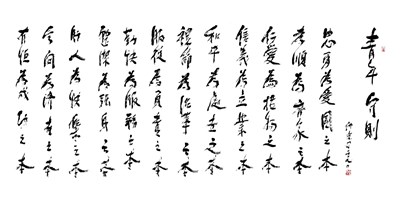 青年守則
忠勇為愛國之本
孝順為齊家之本
仁愛為接物之本
信義為立業之本
和平為處世之本
禮節為治事之本
服從為負責之本
勤儉為服務之本
整潔為強身之本
助人為快樂之本
學問為濟世之本
有恆為成功之本